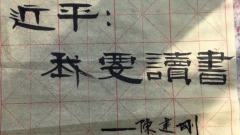 近平：
我要讀書
——陳建剛